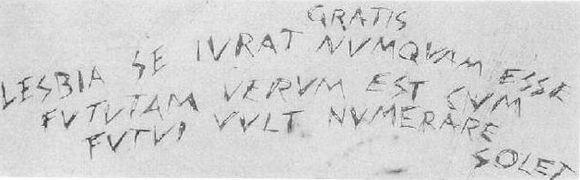 GRATIS
LESBIA SE IVRAT NVMQVAM ESSE
FVTVTAM VERVM EST CVM
FVTVI VVLT NVMERARE
SOLET